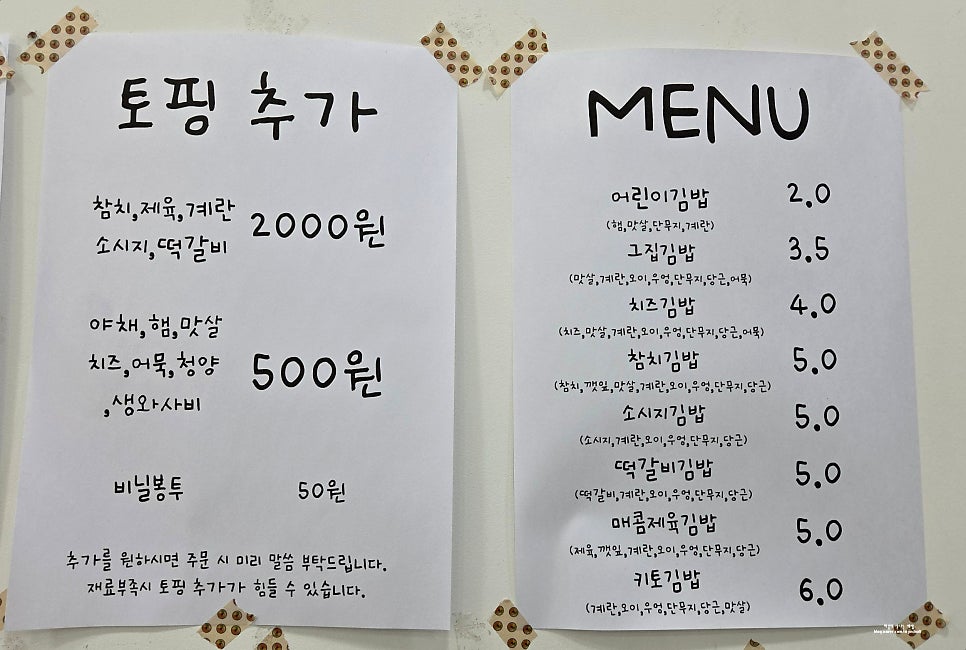 토핑 추가
참치,제육,계란
소시지,떡갈비
2000원
야채,햄,맛살
치즈,어묵,청양
,생와사비
500원
비닐봉투 50원
추가를 원하시면 주문 시 미리 말씀 부탁드립니다.
재료부족시 토핑 추가가 힘들 수 있습니다.
MENU
어린이김밥 2.0
(햄,맛살,단무지,계란)
그집김밥 3.5
(맛살,계란,오이,우엉,단무지,당근,어묵)
치즈김밥 4.0
(치즈,맛살,계란,오이,우엉,단무지,당근,어묵)
참치김밥 5.0
(참치,깻잎,맛살,계란,오이,우엉,단무지,당근)
소시지김밥 5.0
(소시지,계란,오이,우엉,단무지,당근)
떡갈비김밥 5.0
(떡갈비,계란,오이,우엉,단무지,당근)
매콤제육김밥 5.0
(제육,깻잎,계란,오이,우엉,단무지,당근)
키토김밥 6.0
(계란,오이,우엉,단무지,당근,맛살)